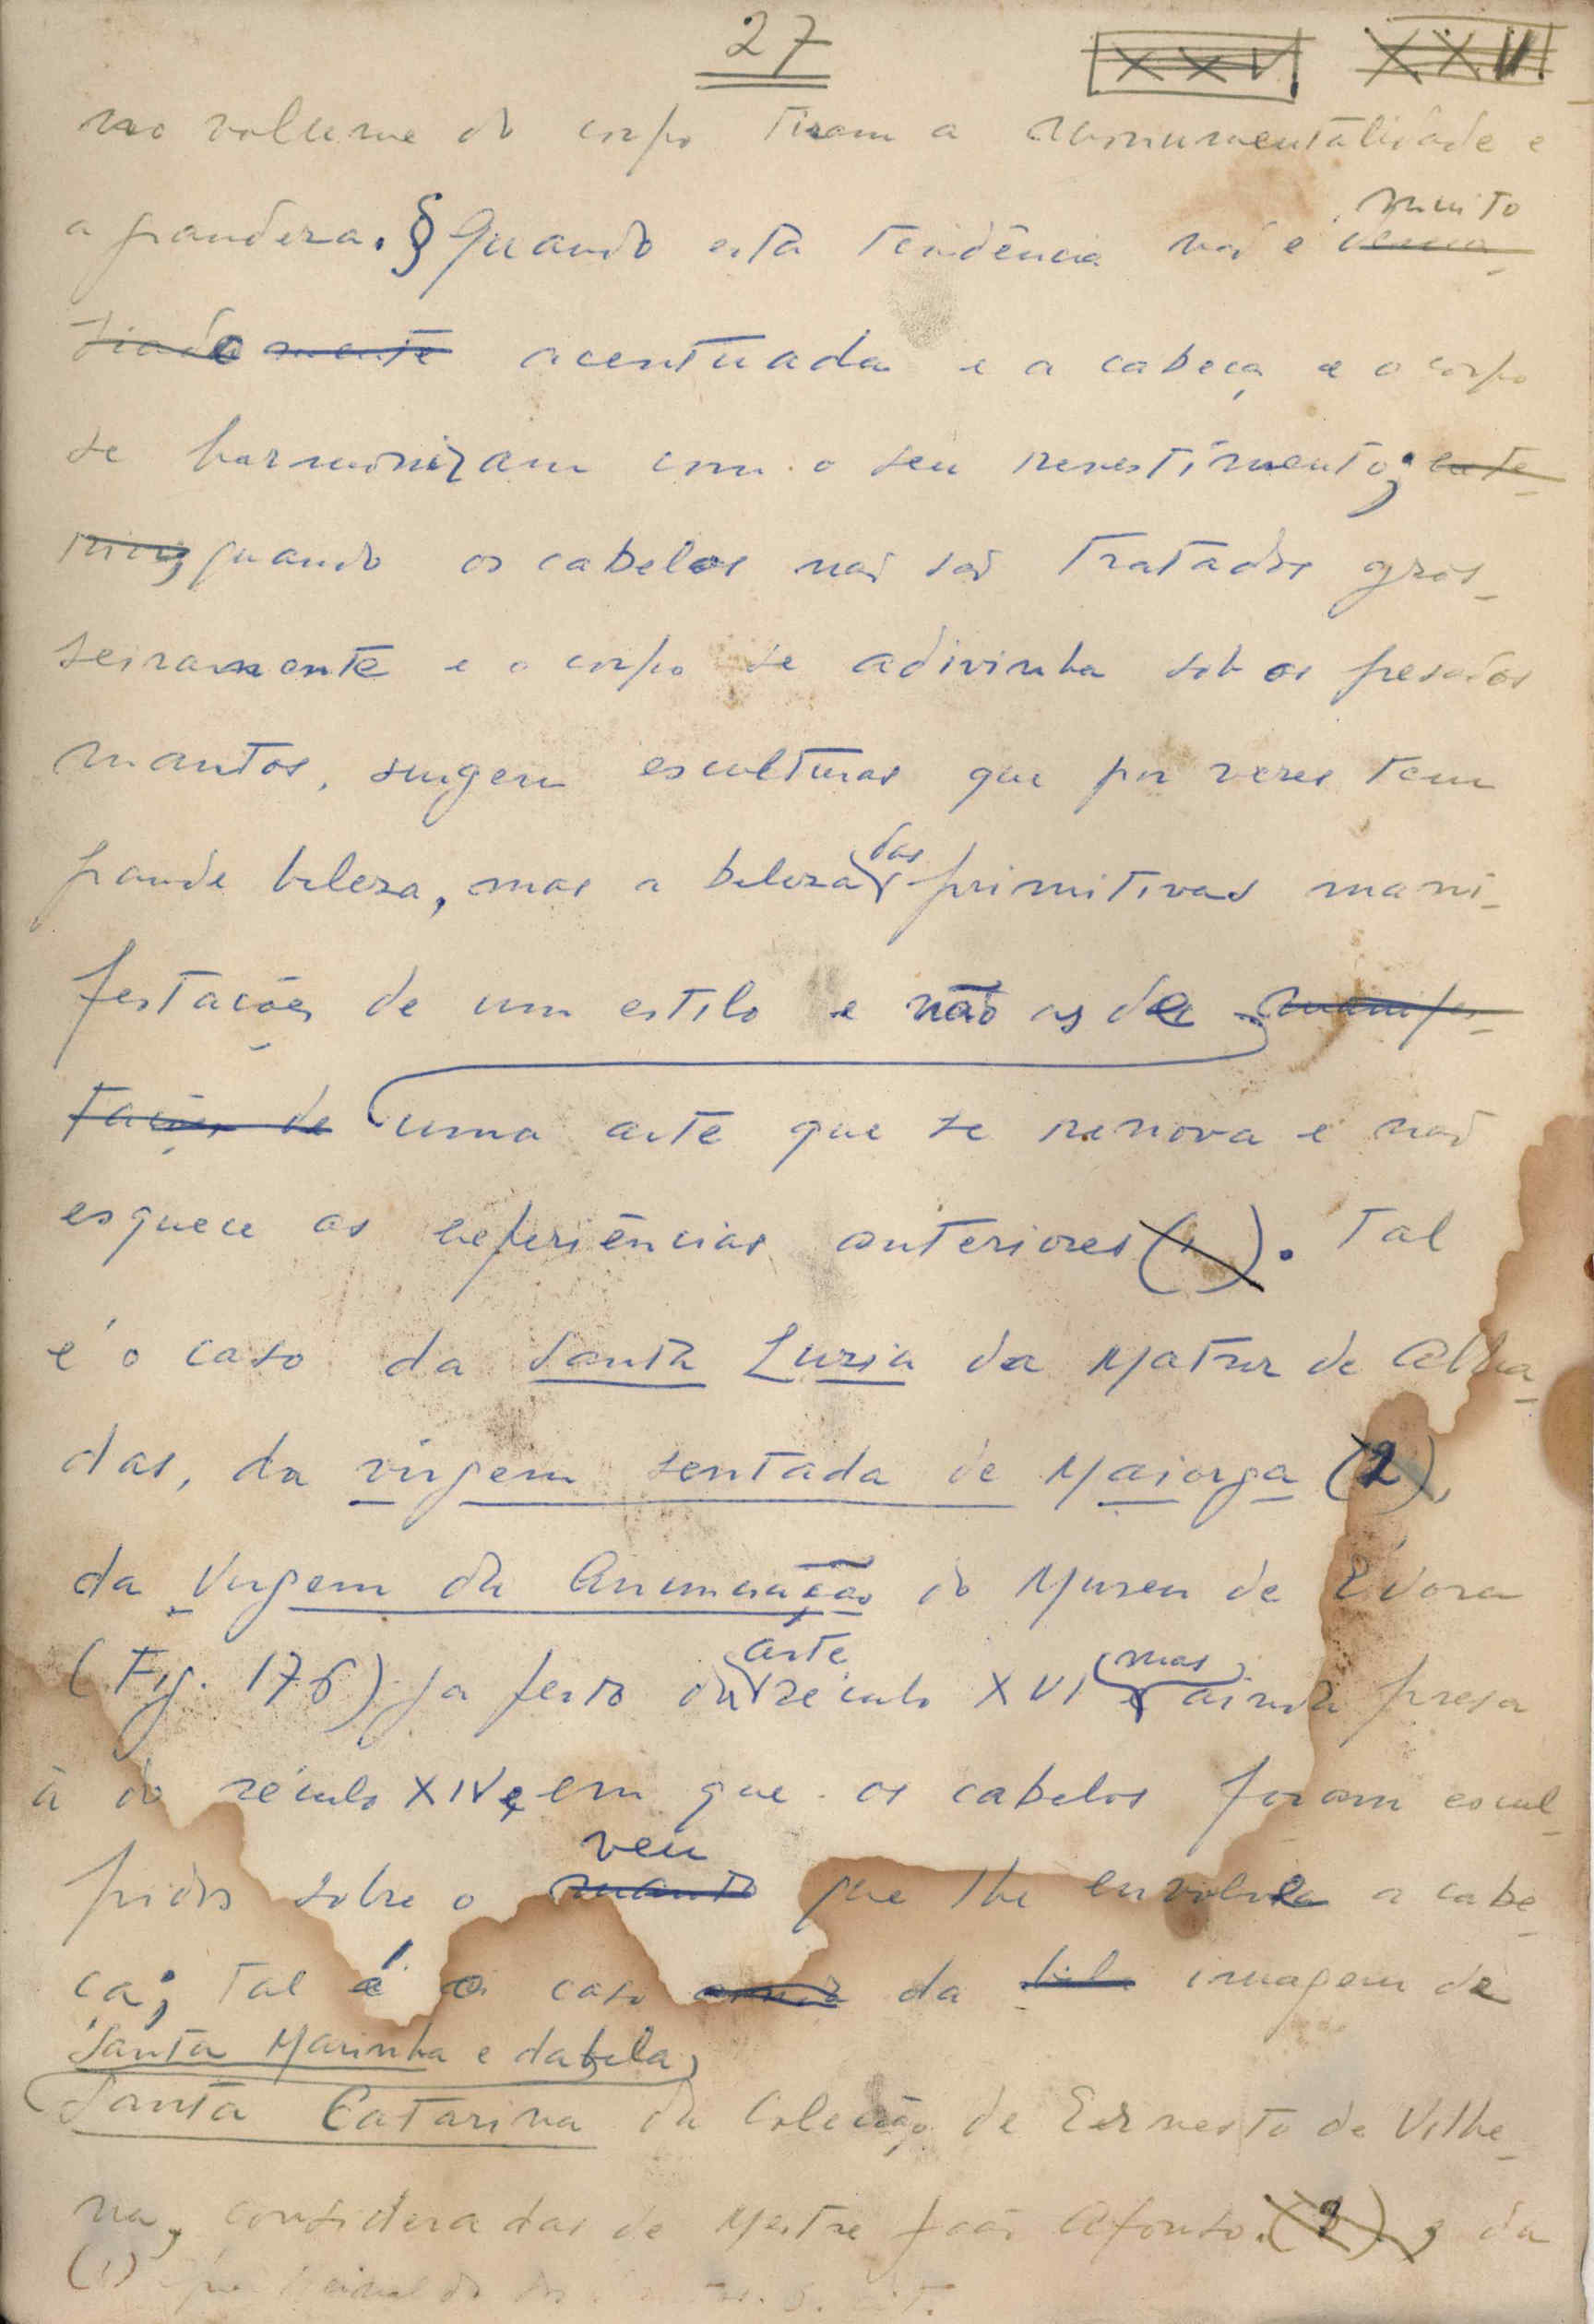 27 XXV XXVI
no volume do corpo tiram a monumentalidade e
a grandeza. § Quando esta tendência não é dema- muito
siadamente acentuada e a cabeça e o corpo
se harmonizam com o seu revestimento;
quando os cabelos não são tratados gros-
seiramente e o corpo se adivinha sob os pesados
mantos, surgem esculturas que por vezes tem
grande beleza, mas a beleza das primitivas mani-
festações de um estilo e não as de manifes-
tações de uma arte que se renova e não
esquece as experiências anteriores (1). Tal
é o caso da Santa Luzia da Matriz de Alha-
das, da virgem sentada de Maiorga (2),
da Virgem da Anunciação do Museu de Évora
(Fig. 176) já perto da arte século XVI mas e ainda presa
à do século XIV e em que os cabelos foram escul-
pidos sobre o manto veu que lhe envolve a cabe-
ça; tal é o caso da bela imagem de
Santa Marinha e da bela
Santa Catarina da Coleção de Ernesto de Vilhe-
na, consideradas de Mestre João Afonso. (3) e da
(1)